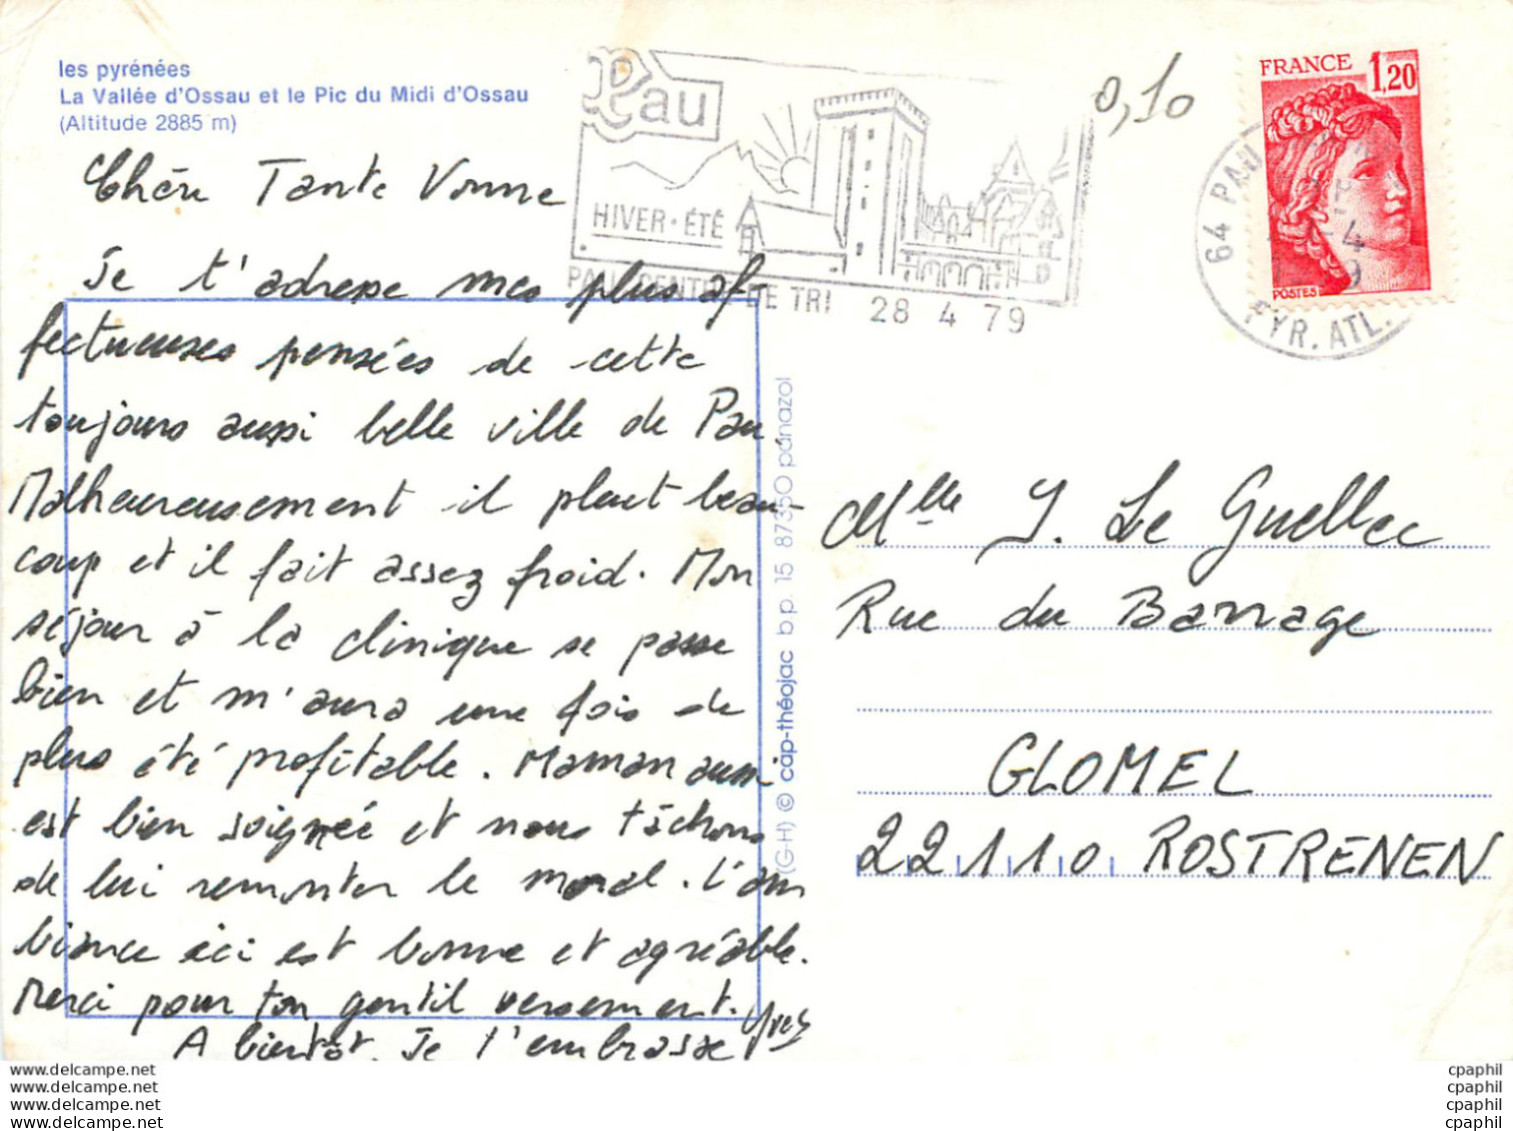 les pyrénées
La Vallée d'Ossau et le Pic du Midi d'Ossau
(Altitude 2885 m)
Pau
HIVER · ÉTÉ
PAU CENTRE DE TRI 28 4 79
0,10
FRANCE 1,20
POSTES
64 PAU
PYR. ATL.
Chère Tante Vonne
Je t'adresse mes plus af-
fectueuses pensées de cette
toujours aussi belle ville de Pau.
Malheureusement il pleut beau-
coup et il fait assez froid. Mon
séjour à la clinique se passe
bien et m'aura une fois de
plus été profitable. Maman aussi
est bien soignée et nous tâchons
de lui remonter le moral. L'am
biance ici est bonne et agréable.
Merci pour ton gentil versement.
A bientôt. Je t'embrasse Yves
(G-H) © cap-théojac b.p. 15 87350 panazol
Mlle Y. Le Guellec
Rue du Barrage
GLOMEL
22110 ROSTRENEN
www.delcampe.net
www.delcampe.net
www.delcampe.net
www.delcampe.net
cpaphil
cpaphil
cpaphil
cpaphil